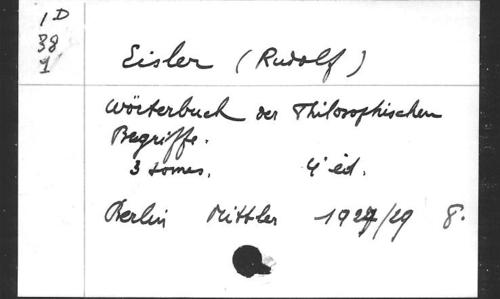 1D
38
1
Eisler (Rudolf)
Wörterbuch der Philosophischen
Begriffe.
3 tomes. 4' éd.
Berlin Mittler 1927/29 8.